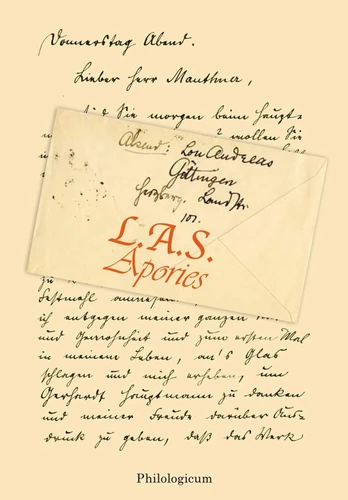 Donnerstag Abend.
Lieber Herr Mauthner,
Sie morgen beim Haupt-
? wollen Sie
Absend: Lou Andreas
Göttingen
Herzberg. Landstr.
101.
L.A.S.
Apories
zu
Festmahl
ich entgegen meiner ganzen
und Gewohnheit und zum ersten Mal
in meinem Leben, an's Glas
schlagen und mich erheben, um
Gerhardt Hauptmann zu danken
und meiner Freude darüber Aus-
druck zu geben, daß das Werk
Philologicum